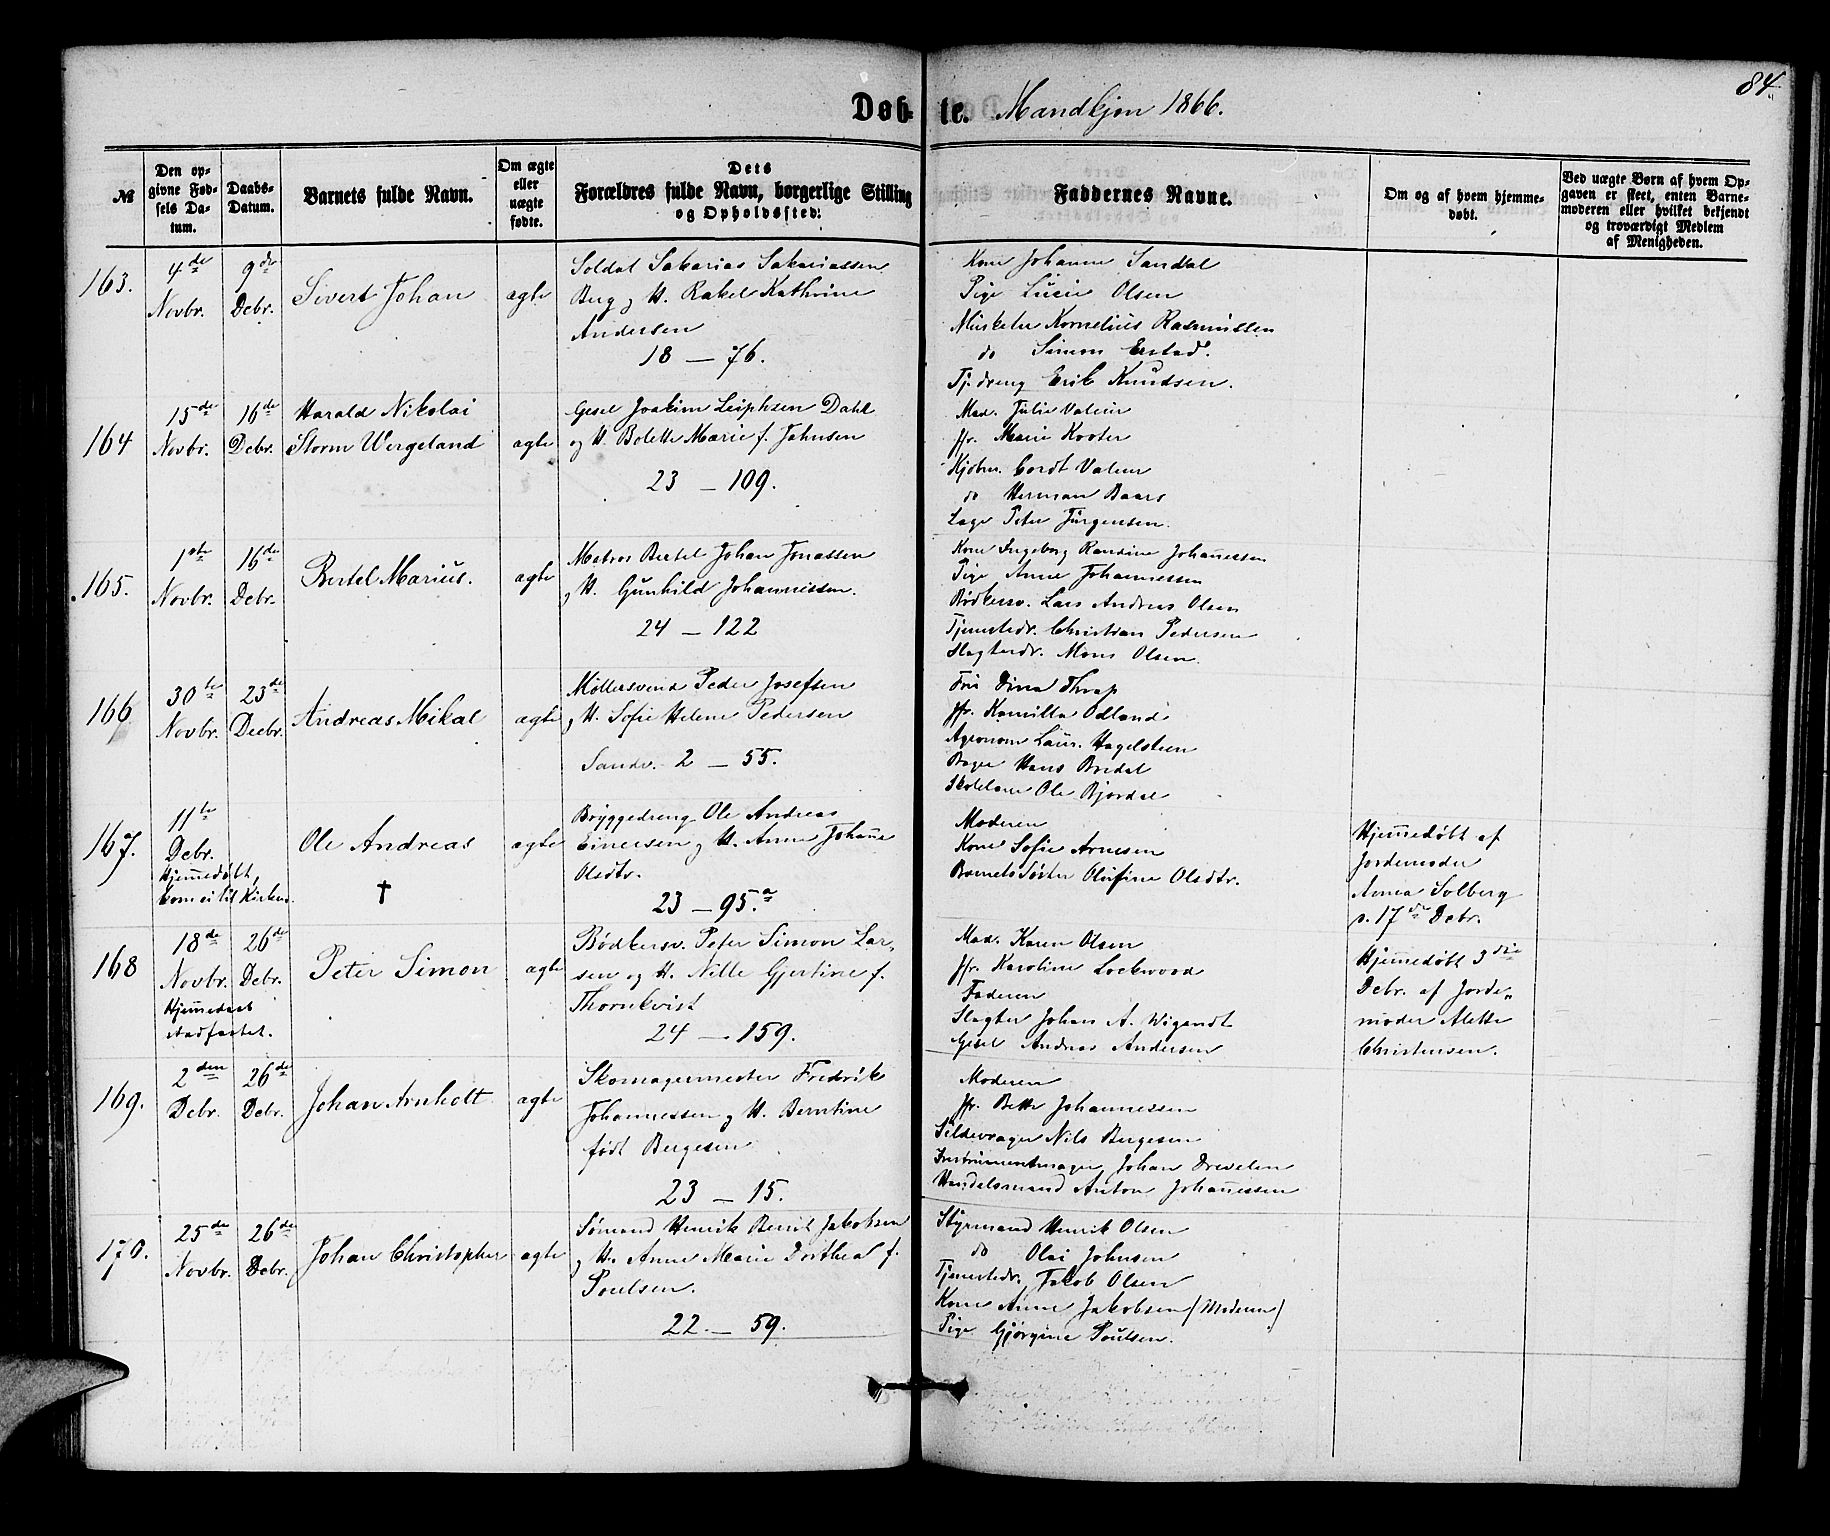 84
Døb- te. Mandkjøn 1866.
№
Den opgivne Fødsels Datum.
Daabs-Datum.
Barnets fulde Navn.
Om ægte eller uægte fødte.
Dets Forældres fulde Navn, borgerlige Stilling og Opholdssted.
Faddernes Navne.
Om og af hvem hjemmedøbt.
Ved uægte Børn af hvem Opgaven er skeet, enten Barnemoderen eller hvilket bekjendt og troværdigt Medlem af Menigheden.
163.
4de Novbr.
9de Debr.
Sivert Johan
ægte
Soldat Sakarias Sakariassen
Berg og H. Rakel Kathrine
Andersen
18 – 76.
Kone Johanne Sandal
Pige Lucie Olsen
Musketer Kornelius Rasmussen
do Simon Erstad.
Tj. dreng Erik Knudsen.
164
15de Novbr.
16de Debr.
Harald Nikolai
Storm Wergeland
ægte
Gesel Joakim Leiphsen Dahl
og H. Bolette Marie f. Johnsen
23 – 109.
Mad. Julie Valeur
Jfr. Marie Kooter
Kjøbm. Cordt Valeur
do Herman Baars
Lage Peter Jürgensen.
165.
1ste Novbr.
16de Debr.
Bertel Marius.
ægte
Matros Bertel Johan Jonassen
og H. Gunhild Johannessen.
24 – 122
Kone Ingeborg Randine Johanessen
Pige Anne Johannessen
Bødkersv. Lars Andreas Olsen
Tjenestedr. Christian Pedersen
Slagterdr. Mons Olsen.
166
30te Novbr.
23de Decbr.
Andreas Mikal
ægte
Møllersvend Peder Josefsen
og H. Sofie Helene Pedersen
Sandv. 2 – 55.
Fru Dina Thrap
Jfr. Kamilla Odland
Agronom Laur. Hagelsteen
Bager Hans Bredal
Skolelærer Ole Bjordal
167.
11te Debr.
Hjemmedøbt,
Kom ei til Kirken.
Ole Andreas
†
ægte
Bryggedreng Ole Andreas
Einersen og H. Anne Johanne
Olsdtr.
23 – 95.a
Moderen
Kone Sofie Arnesen
Barnets Søster Olufine Olsdtr.
Hjemmedøbt af
Jordemoder
Annea Solberg
d. 17de Debr.
168
18de Novbr.
26de Debr.
Hjemmedaab
stadfæstet.
Peter Simon
ægte
Bødkersv. Peter Simon Larsen
og H. Nille Gjertine f.
Thornkvist
24 – 159.
Mad. Karen Olsen
Jfr. Karoline Lockwood
Faderen
Slagter Johan A. Wigandt
Gesel Andreas Andersen
Hjemmedøbt 3die
Debr. af Jorde-
moder Alette
Christensen.
169.
2den Debr.
26de Debr.
Johan Arnholt
ægte
Skomagermester Fredrik
Johannessen og H. Berntine
født Bergesen
23 – 15.
Moderen
Jfr. Bette Johannessen
Sildevrager Nils Bergesen
Instrumentmager Johan Drevelen
Handelsmand Anton Johannessen
170.
25de Novbr.
26de Debr.
Johan Christopher
ægte
Sømand Henrik Berent Jakobsen
og H. Anne Marie Dorthea f.
Poulsen.
22. – 59.
Styrmand Henrik Olsen
do Olai Johnsen
Tjenestedr. Jakob Olsen
Kone Anne Jakobsen (Moderen)
Pige Gjørgine Poulsen.